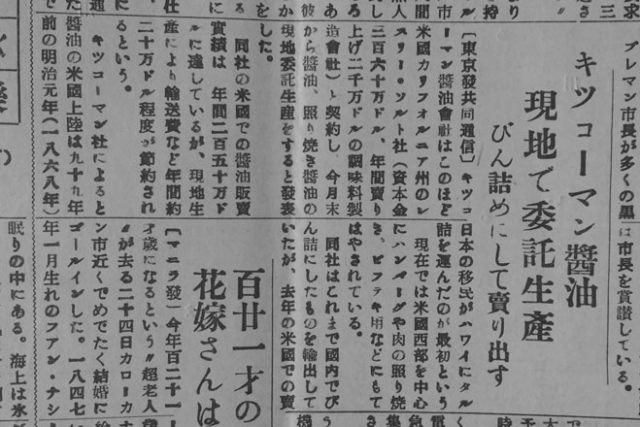 プレマン市長が多くの黒
に市長を賞讃している。
キツコーマン醬油
現地で委託生産
びん詰めにして賣り出す
〔東京發共同通信〕キツコ
ーマン醬油會社はこのほど
米國カリフォルニア州のレ
スリー・ソルト社（資本金
三百六十万ドル、年間賣り
上げ二千万ドルの調味料製
造會社）と契約し、今月末
から醬油、照り焼き醬油の
現地委託生産をすると發表
した。
同社の米國での醬油販賣
實績は年間二百五十万ド
ルに達しているが、現地生
産により輸送費など年間約
二十万ドル程度が節約され
るという。
キツコーマン社によると
醬油の米國上陸は九十九年
前の明治元年（一八六八年）
日本の移民がハワイにタル
詰を運んだのが最初という
現在では米國西部を中心
にハンバーグや肉の照り焼
き、ビフテキ用などにもて
はやされている。
同社はこれまで國内でび
ん詰にしたものを輸出して
いたが、去年の米國での賣
百廿一才の
花嫁さんは
〔マニラ發〕今年百二十一
才歳になるという〃超老人
〃が去る二十四日カローカ
ン市近くでめでたく結婚に
ゴールインした。一八四七
年一月生れのファン・ナシ
眠りの中にある。海上は氷